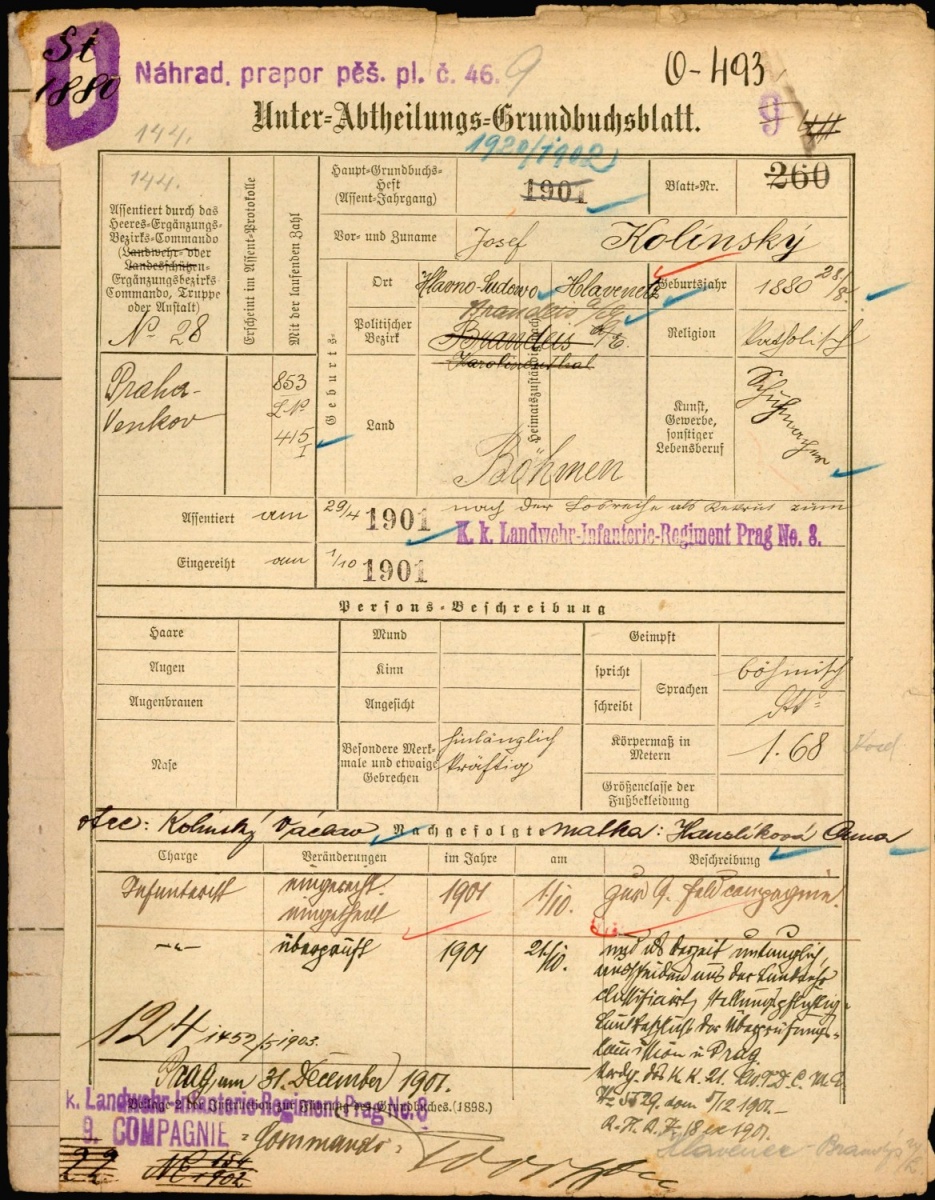 St
1880
D
Náhrad. prapor pěš. pl. č. 46. 9
O-493
9
Unter-Abtheilungs-Grundbuchsblatt.
144.
1920/1902
144.
Assentiert durch das
Heeres-Ergänzungs-
Bezirks-Commando
(Landwehr- oder
Landesschützen-
Ergänzungsbezirks-
Commando, Truppe
oder Anstalt)
No 28
Praha-
Venkov
Erscheint im Assent-Protokolle
Mit der laufenden Zahl
853
L No
415
I
Haupt-Grundbuchs-
Heft
(Assent-Jahrgang)
1901
Blatt-Nr.
260
Vor- und Zuname
Josef Kolínský
Geburts-
Ort
Hlavno-Sudovo
Hlavenec
Geburtsjahr
1880 28/8.
Politischer
Bezirk
Brandeis a/E.
Brandeis a/E.
Karolinenthal
Heimatszuständigkeit
Religion
katholisch
Land
Böhmen
Kunst,
Gewerbe,
sonstiger
Lebensberuf
Schuhmacher
Assentiert am 29/4 1901
nach der Losreihe als Rekrut zum
K. k. Landwehr-Infanterie-Regiment Prag No. 8.
Eingereiht am 1/10 1901
Persons-Beschreibung
Haare
Mund
Geimpft
Augen
Kinn
spricht
Sprachen
böhmisch
Augenbrauen
Angesicht
schreibt
Nase
Besondere Merk-
male und etwaige
Gebrechen
hinlänglich
kräftig
Körpermaß in
Metern
1.68
Größenclasse der
Fußbekleidung
otec: Kolínský Václav
Nachgefolgte
matka: Hanzlíková Anna
Charge
Veränderungen
im Jahre
am
Beschreibung
Infanterist
eingereiht
eingetheilt
1901
1/10.
zur 9. Feldcompagnie.
-"-
überprüft
1901
21/10.
und als derzeit untauglich,
der Landwehr
classificiert, stellungspflichtig.
der Überprüfungs-
commission in Prag
124 1452/5 1903.
Prag, am 31. December 1901.
k. Landwehr-Infanterie-Regiment Prag No. 8
Beilage 2 der Instruction zur Führung des Grundbuches. (1898.)
9. COMPAGNIE
Commando:
Hlavenec - Brandýs n/L